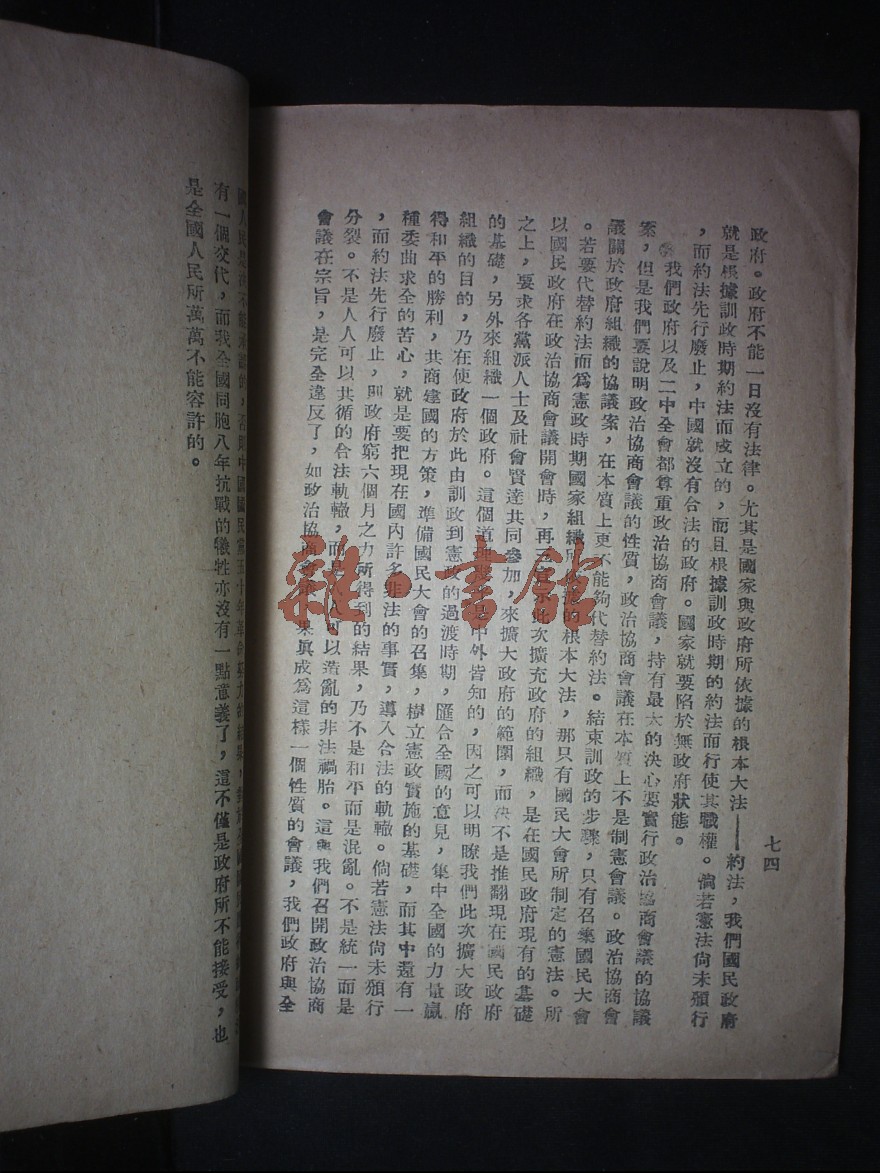 七四
政府。政府不能一日沒有法律。尤其是國家與政府所依據的根本大法——約法,我們國民政府
就是根據訓政時期約法而成立的,而且根據訓政時期的約法而行使其職權。倘若憲法尚未頒行
,而約法先行廢止,中國就沒有合法的政府。國家就要陷於無政府狀態。
我們政府以及二中全會都尊重政治協商會議,持有最大的決心要實行政治協商會議的協議
案,但是我們要說明政治協商會議的性質,政治協商會議在本質上不是制憲會議。政治協商會
議關於政府組織的協議案,在本質上更不能夠代替約法。結束訓政的步驟,只有召集國民大會
。若要代替約法而爲憲政時期國家組織所依據的根本大法,那只有國民大會所制定的憲法。所
以國民政府在政治協商會議開會時,再三宣示此次擴充政府的組織,是在國民政府現有的基礎
之上,要求各黨派人士及社會賢達共同參加,來擴大政府的範圍,而決不是推翻現在國民政府
的基礎,另外來組織一個政府。這個道理是中外皆知的,因之可以明瞭我們此次擴大政府
組織的目的,乃在使政府於此由訓政到憲政的過渡時期,匯合全國的意見,集中全國的力量贏
得和平的勝利,共商建國的方策,準備國民大會的召集,樹立憲政實施的基礎,而其中還有一
種委曲求全的苦心,就是要把現在國內許多非法的事實,導入合法的軌轍。倘若憲法尚未頒行
,而約法先行廢止,則政府窮六個月之力所得到的結果,乃不是和平而是混亂。不是統一而是
分裂。不是人人可以共循的合法軌轍,而是人人可以淆亂的非法禍胎。這與我們召開政治協商
會議在宗旨,是完全違反了,如政治協商會議果眞成爲這樣一個性質的會議,我們政府與全
國人民是決不能承認的,否則中國國民黨五十年革命
有一個交代,而我全國同胞八年抗戰的犧牲亦沒有一點意義了,這不僅是政府所不能接受,也
是全國人民所萬萬不能容許的。
雜·書館